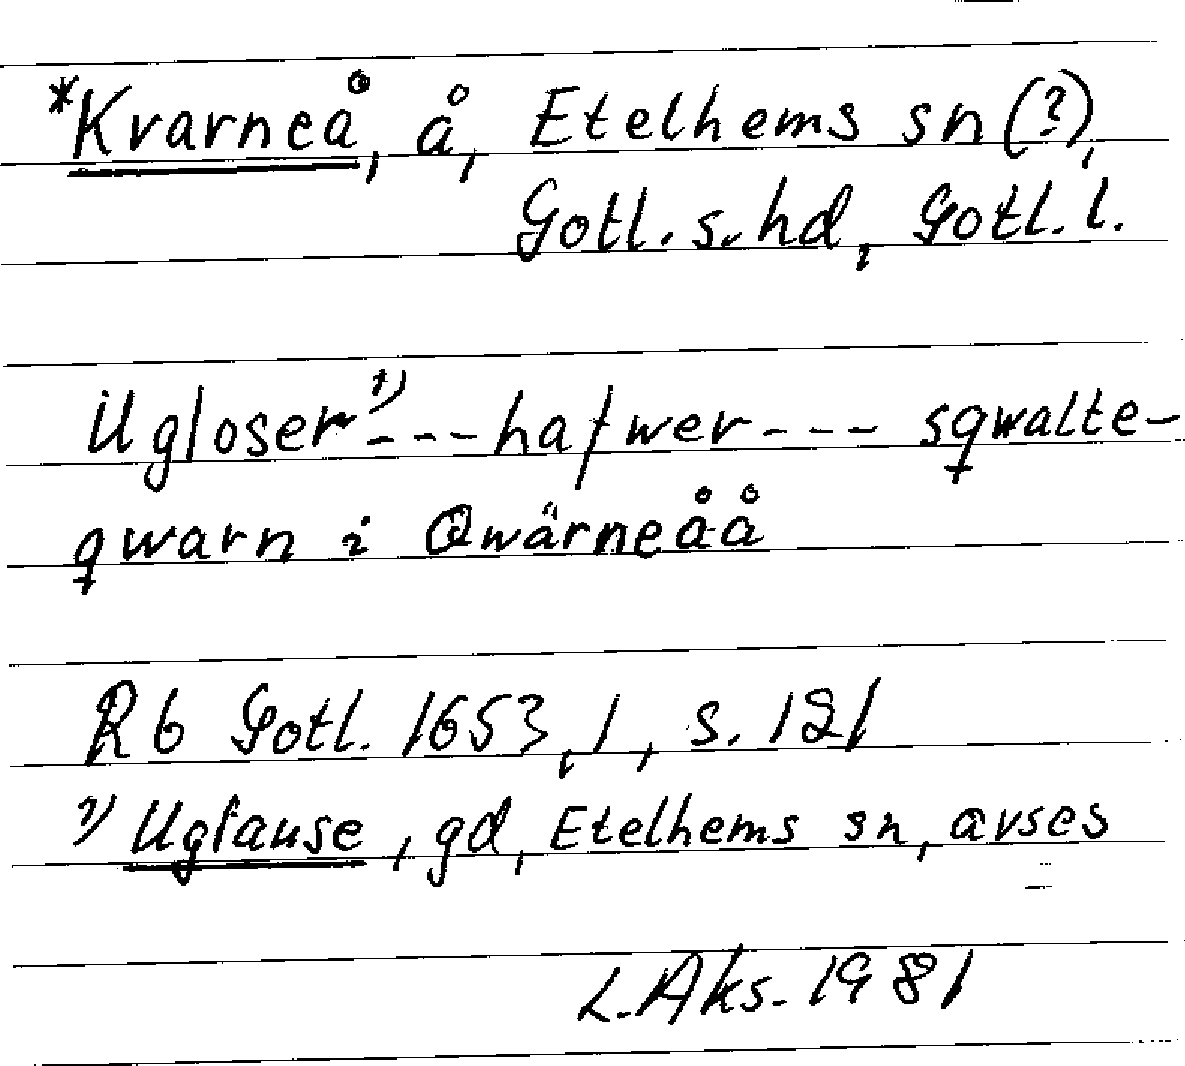 *Kvarneå, å, Etelhems sn (?),
Gotl. s. hd, Gotl. l.
Ugloser¹⁾---hafwer--- sqwalte-
qwarn i Qwärneåå
Rb Gotl. 1653, 1, s. 121
¹⁾ Uglause, gd, Etelhems sn, avses
L. Aks. 1981